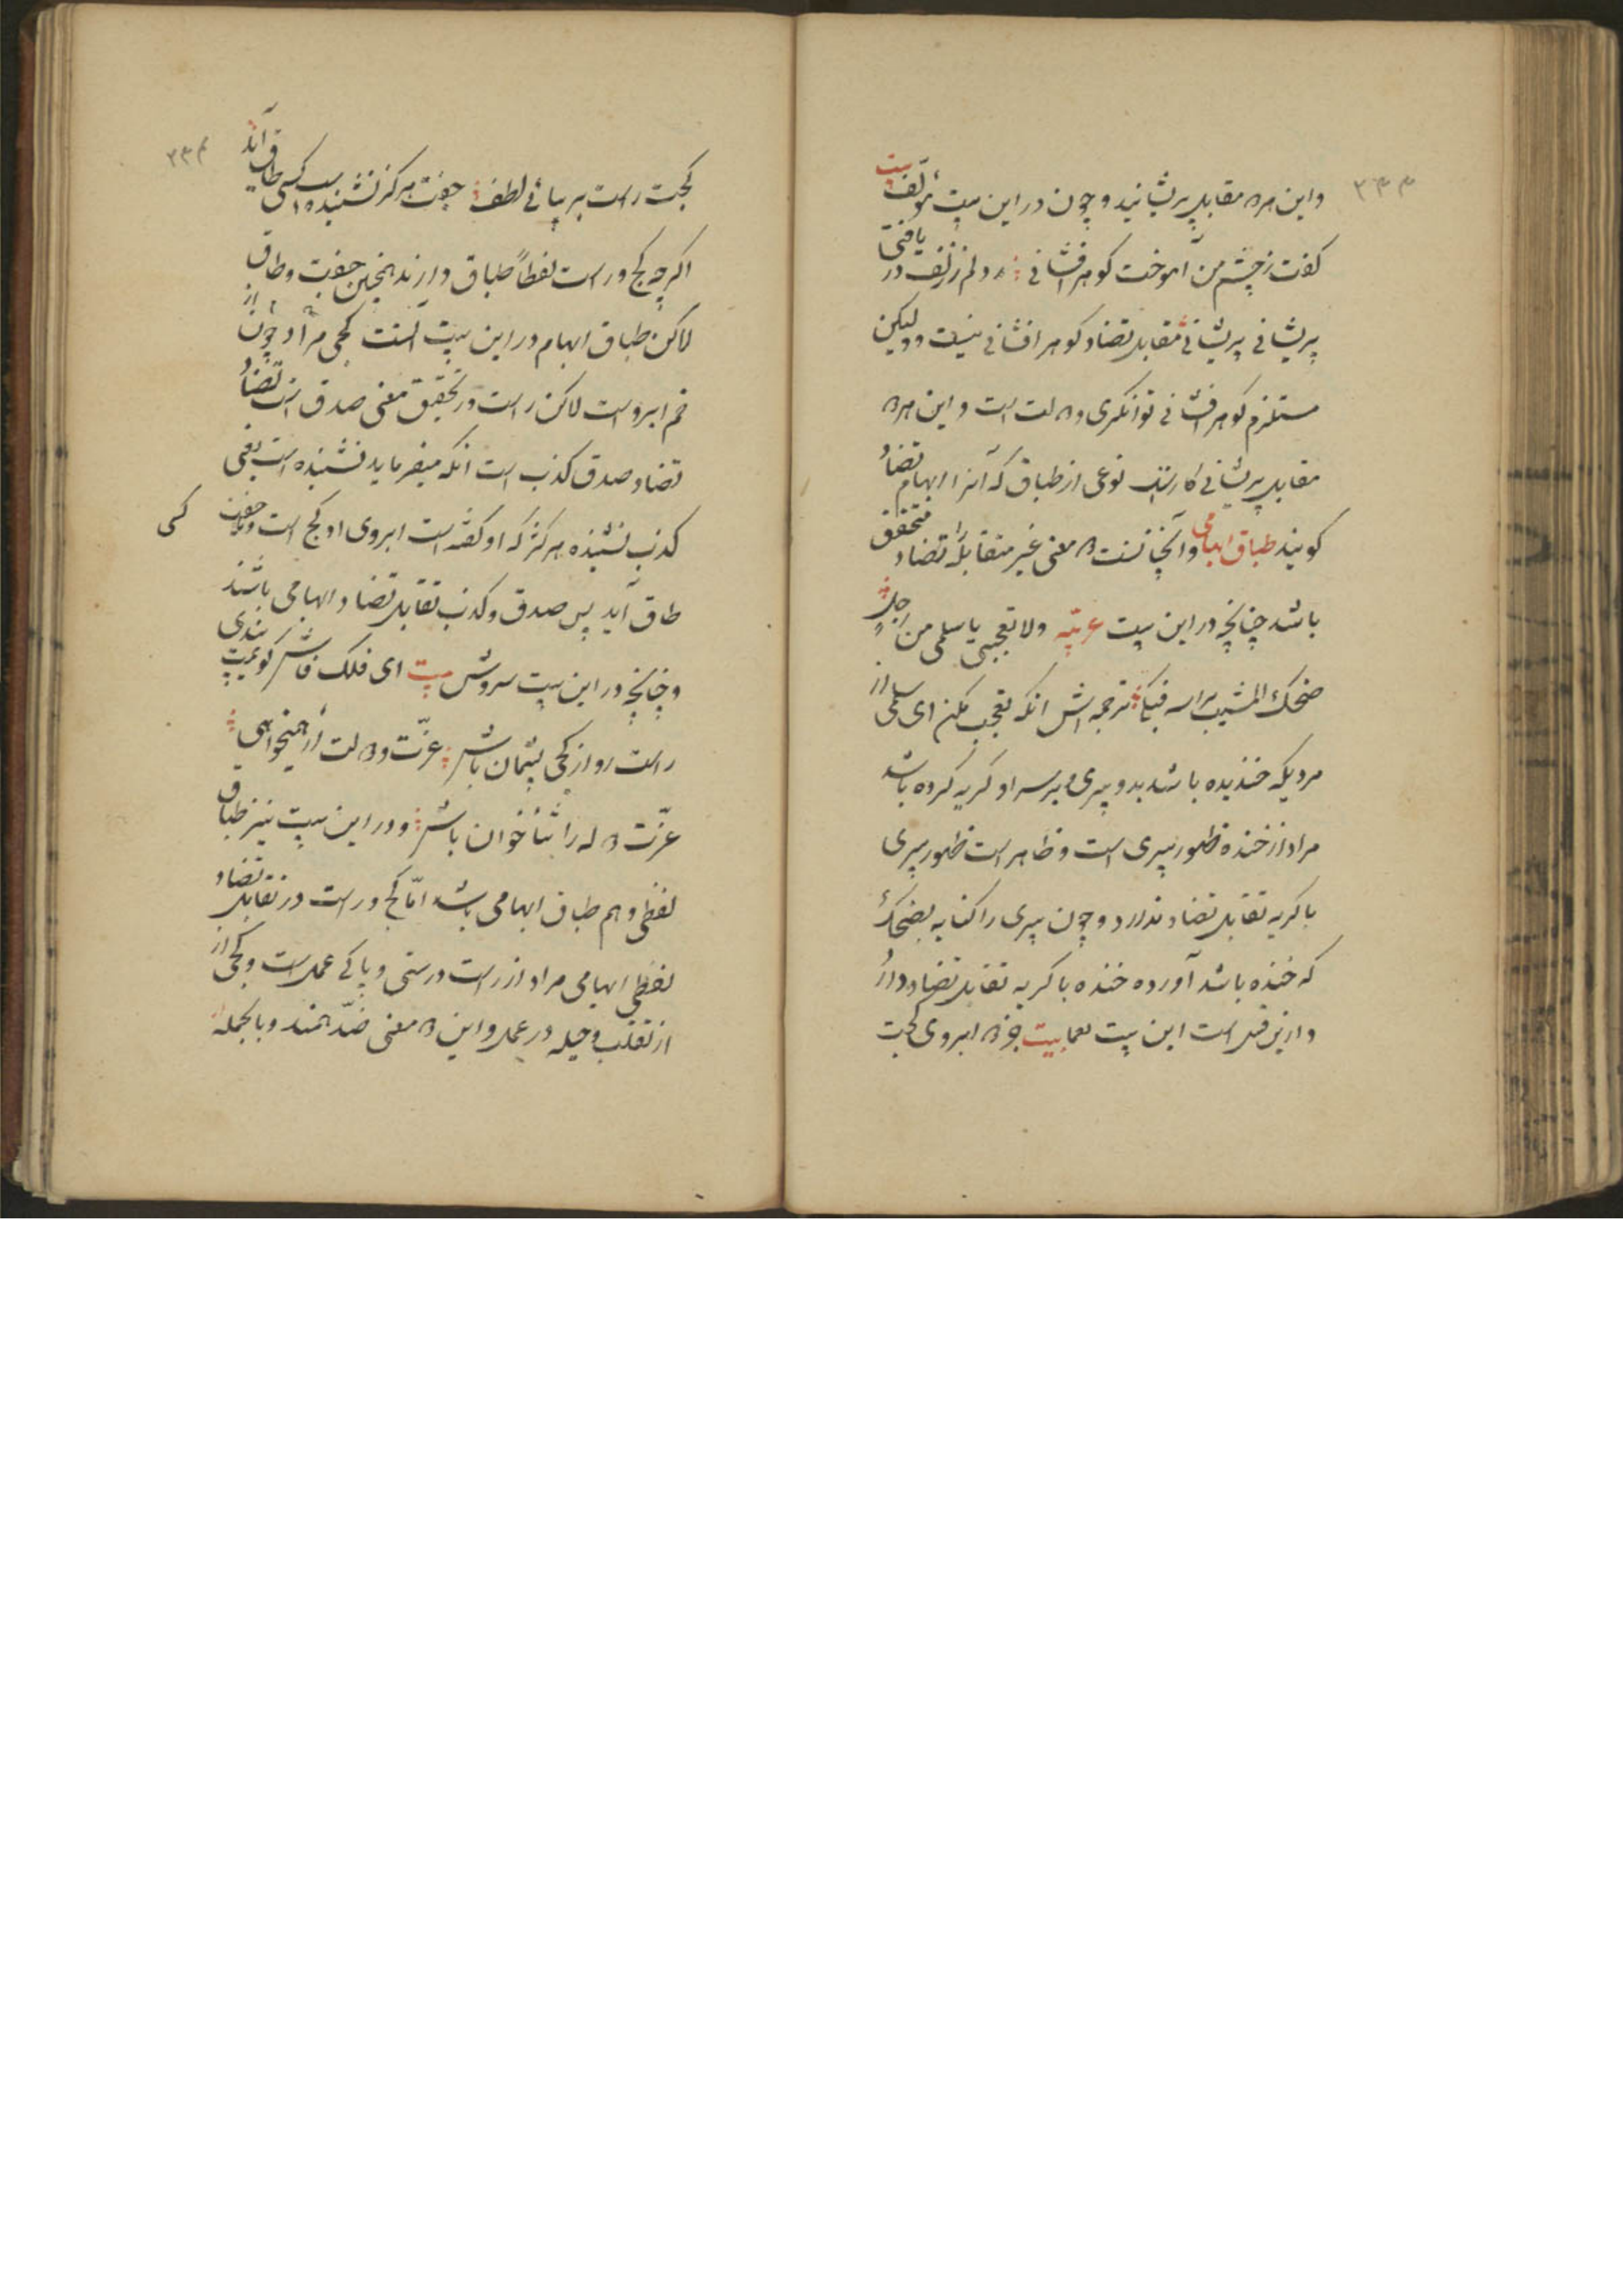 ۳۴۳
واین هر دو مقابل پریشانید و چون در این بیت مؤلف بیت
کفت ز چشم من آموخت کوهر افشانی دلم ز زلف در یافتی
پریشانی پریشانی مقابل تضاد کوهر افشانی نیست ولیکن
مستلزم کوهر افشانی توانکری و دولت است و این هر دو
مقابل پریشانی نوعی از طباق که آنرا ایهام تضاد
کویند طباق ایهامی وآنچنانست دو معنی غیر متقابل را تضاد متحقق
باشد چنانچه در این بیت عربیّه ولا تعجبی یا سلمی من رجلٍ
ضحک المشیب براسه فبکا ترجمه اش آنکه تعجب مکن ای سلمی از
مردیکه خندیده باشد بدو پیری بر سر او کریه کرده باشد
مراد از خنده ظهور پیری است و ظاهر است ظهور پیری
با کریه تقابل تضاد ندارد و چون پیری را کنایه بضحک
که خنده باشد آورده خنده با کریه تقابل تضاد دارد
و ازین قبیل است این بیت معما بیت جز دو ابروی کجت
۳۴۴
کجت راست بر بیانی لطف جفت هرکز نشنیده است کسی طاق آید
اکرچه کج و راست لفظاً طباق دارند همچنین جفت وطاق
لاکن طباق ایهام در این بیت آنست کجی مراد چون از
خم ابرو است لاکن راست در تحقیق معنی صدق است تضاد
تضاد صدق کذب است آنکه میفرماید نشنیده است یعنی
کذب نشنیده هرکز که او کفته است ابروی او کج است و جفت کسی
طاق آید پس صدق و کذب تقابل تضاد ایهامی باشند
و چنانچه در این بیت سروش بیت ای فلک فاش کویمت پندی
راست رو از کجی پشیمان باش عزّت و دولت ار همیخواهی
عزّت دوله را ثناخوان باش و در این بیت نیز طباق
لفظی وهم طباق ایهامی باشد امّا کج و راست در تقابل تضاد
لفظی ایهامی مراد از راست درستی و پاکی عمل است و کجی از
از تقلب و حیله در عمل و این دو معنی ضدّ همند و بالجمله